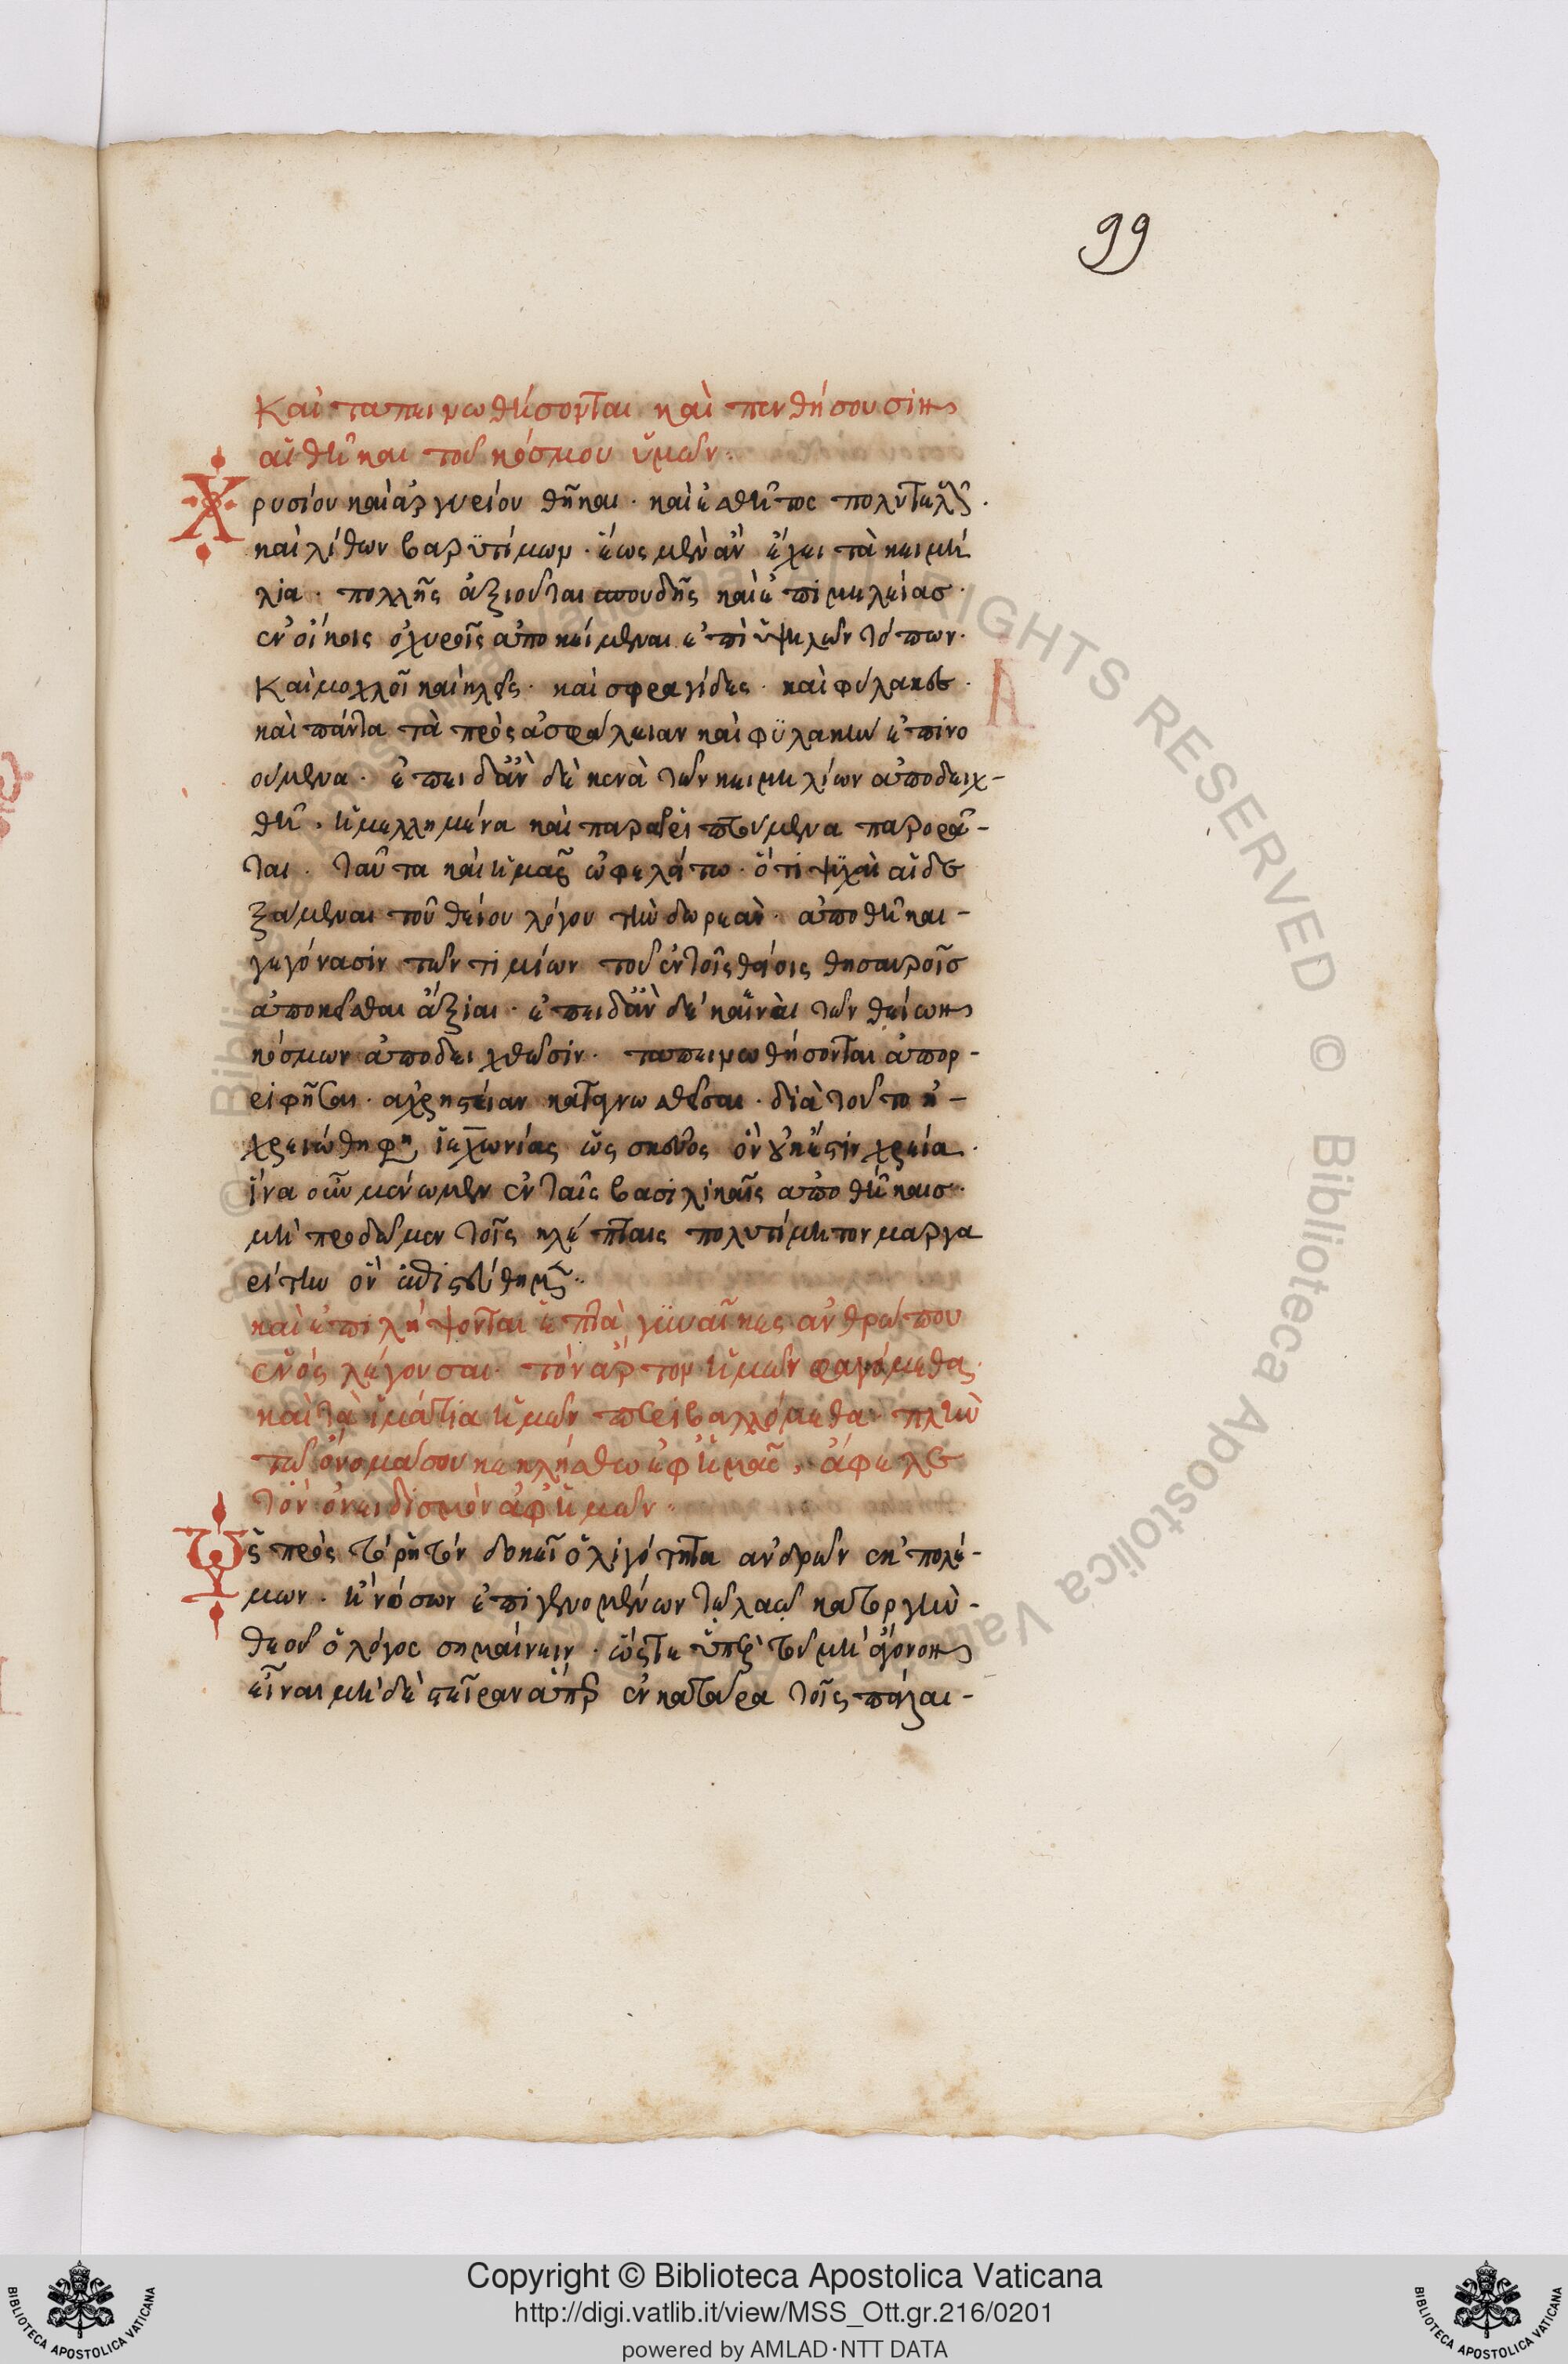 99
Καὶ ταπεινωθήσονται καὶ πενθήσουσιν
αἱ θῆκαι τοῦ κόσμου ὑμῶν·
Χρυσίου καὶ ἀργυρίου θῆκαι· καὶ ἐσθῆτος πολυτελοῦς·
καὶ λίθων βαρϋτίμων· ἕως μὲν ἂν ἔχει τὰ κειμή
λια· πολλῆς ἀξιοῦνται σπουδῆς καὶ ἐπιμελείασ·
ἐν οἴκοις ὀχυροῖς ἀποκείμεναι ἐπὶ ὑψηλῶν τόπων·
Καὶ μοχλοὶ καὶ κλεῖς· καὶ σφραγίδες· καὶ φύλακες·
καὶ πάντα τὰ πρὸς ἀσφάλειαν καὶ φϋλακὴν ἐπινο
ούμενα· ἐπειδὰν δὲ κενὰ τῶν κειμηλίων ἀποδειχ-
θῆ· ἠμελλημένα καὶ παραρριπτούμενα παρορᾶ-
ται· ταῦτα καὶ ἡμᾶς ὠφελάτω· ὅτι ψϋχαὶ αἱ δε
ξάμεναι τοῦ θείου λόγου τὴν δωρεάν· ἀποθῆκαι-
γεγόνασιν τῶν τιμίων τοῦ ἐν τοῖς θείοις θησαυροῖσ
ἀποκεῖσθαι ἄξιαι· ἐπειδὰν δέ καιναὶ τῶν θείων
κόσμων ἀποδειχθῶσιν· ταπεινωθήσονται ἀπορ-
ριφῆναι· ἀχρηστείαν καταγνωσθεῖσαι· διὰ τοῦτο ἠ-
χρειώθη φησὶν ἰεχωνίας ὡς σκεῦος οὗ οὐκ ἔστιν χρεία·
ἵνα οὖν μένωμεν ἐν ταῖς βασιλικαῖς ἀποθήκαισ·
μὴ προδῶμεν τοῖς κλέπταις πολυτίμητον μαργα
ρίτην ὃν ἐπιστεύθημεν··
καὶ ἐπιλήψονται ἑπτὰ γϋναῖκες ἀνθρώπου
ἑνός λέγουσαι· τὸν ἄρτον ἡμῶν φαγόμεθα·
καὶ τὰ ἱμάτια ἡμῶν περιβαλλόμεθα· πλὴν
τὸ ὄνομά σου κεκλήσθω ἐφ ἡμᾶς, ἄφελε
τὸν ὀνειδισμὸν ἀφ ἡμῶν··
Ὡς πρὸς τὸ ῥητόν δοκεῖ ὀλιγότητα ἀνδρῶν ἐκ πολέ-
μων· ἢ νόσων ἐπιγενομένων τῶ λαῶ κατ' ὀργὴν-
θεοῦ ὁ λόγος σημαίνειν· ὥστε ὑπὲρ τοῦ μὴ ἄγονον
εἶναι μηδὲ στεῖραν ἅπερ ἐν κατάρα τοῖς πάλαι-
Α
Copyright © Biblioteca Apostolica Vaticana
http://digi.vatlib.it/view/MSS_Ott.gr.216/0201
powered by AMLAD·NTT DATA
BIBLIOTECA APOSTOLICA VATICANA
BIBLIOTECA APOSTOLICA VATICANA